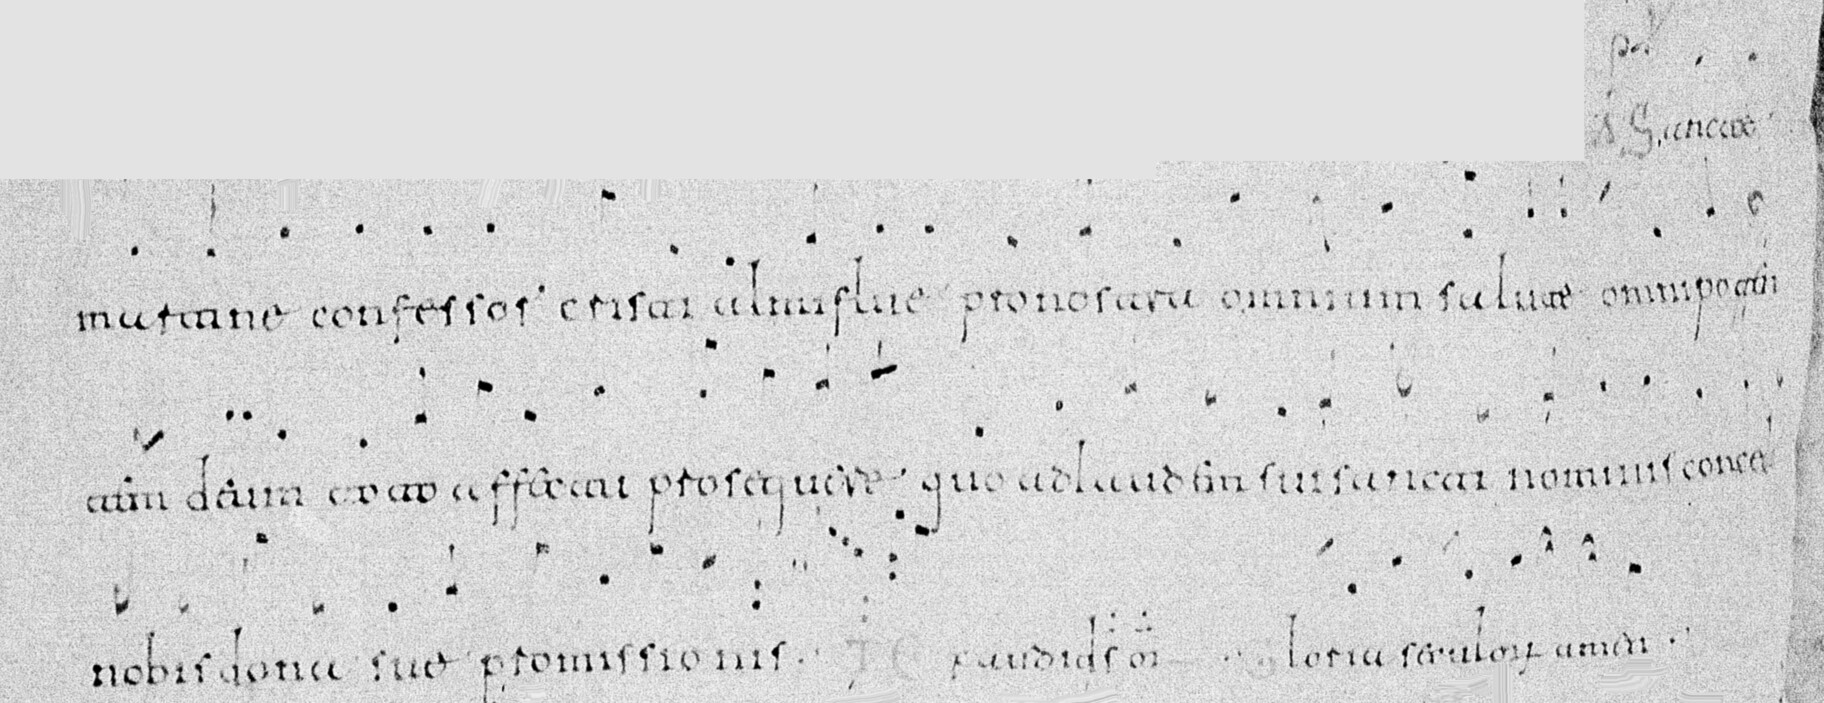 Sancte
martine confessor cristi almifluę pro nostra omnium salute omnipoten
tem deum exora affectu prosequere quo ad laudem sui sancti nominis conced
nobis dona suę promissionis.
gloria seculorum amen.